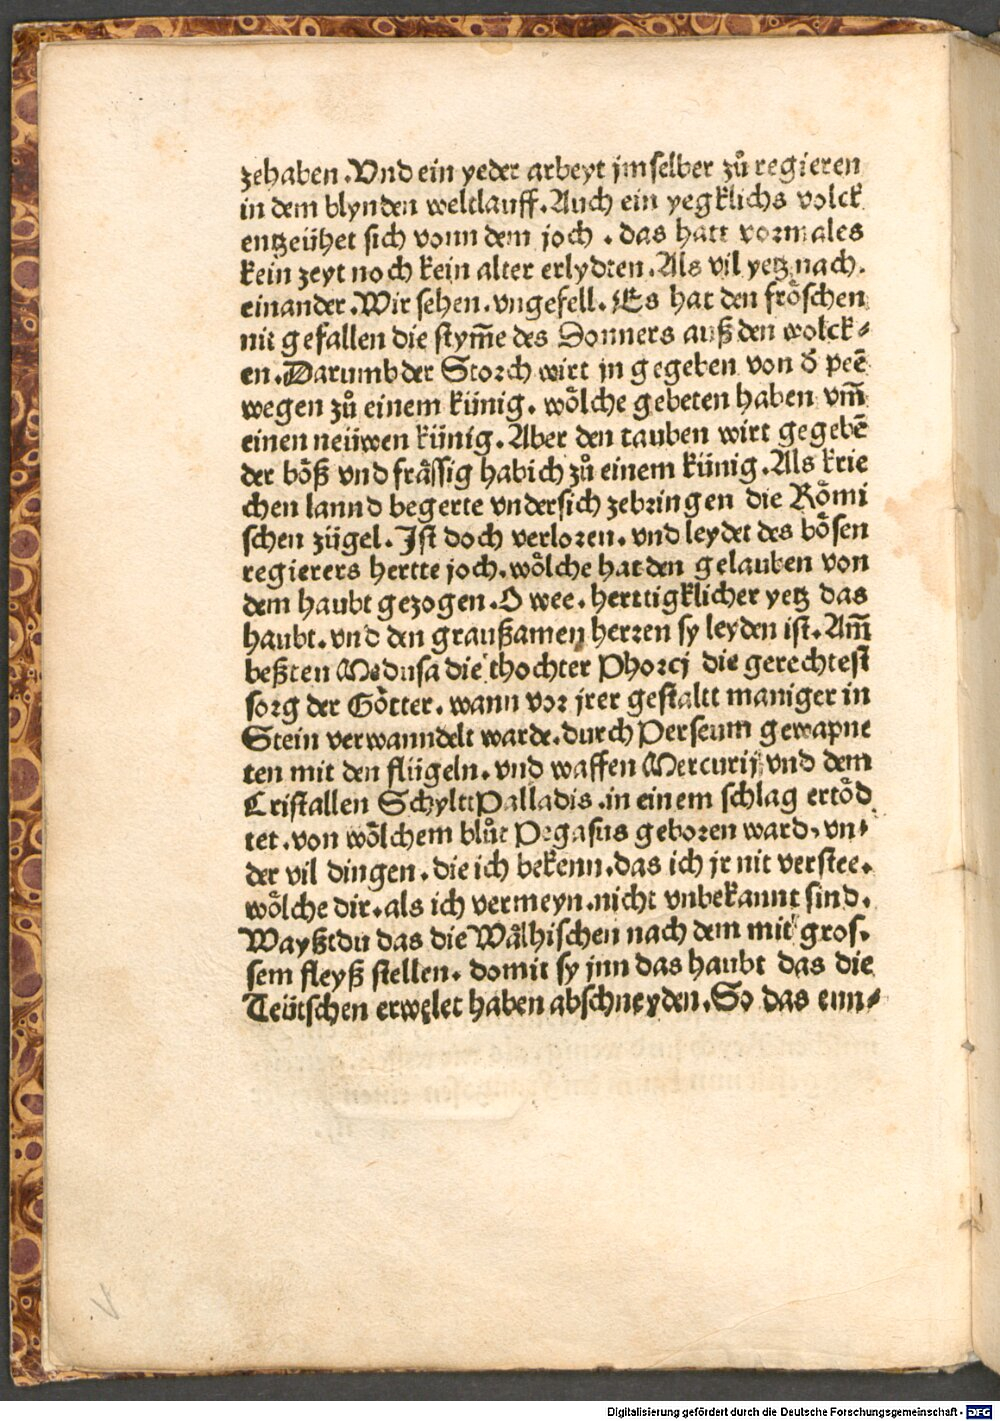 zehaben. Vnd ein yeder arbeyt jm selber zů regieren
in dem blynden weltlauff. Auch ein yegklichs volck
entzeühet sich vonn dem joch . das hatt vormales
kein zeyt noch kein alter erlydten. Als vil yetz nach.
einander. Wir sehen. vngefell. Es hat den fröschen
nit gefallen die stym̄e des Donners auß den wolck⸗
en. Darumb der Storch wirt jn gegeben von d̕ peē
wegen zů einem künig. wölche gebeten haben vm̄
einen neüwen künig. Aber den tauben wirt gegebē
der böß vnd frässig habich zů einem künig. Als krie
chen lannd begerte vndersich zebringen die Römi
schen zügel. Ist doch verloren. vnd leydet des bösen
regierers hertte joch. wölche hat den gelauben von
dem haubt gezogen. O wee. herttigklicher yetz das
haubt. vnd den graußamen herren sy leyden ist. Am̄
beßten Medusa die thochter Phorcj die gerechtest
sorg der Götter. wann vor jrer gestaltt maniger in
Stein verwanndelt warde. durch Perseum gewapne
ten mit den flügeln. vnd waffen Mercurij vnd dem
Cristallen Schyltt Palladis .in einem schlag ertöd
tet. von wölchem blůt Pegasus geboren ward, vn⸗
der vil dingen. die ich bekenn. das ich jr nit verstee.
wölche dir. als ich vermeyn. nicht vnbekannt sind.
Wayßt du das die Wälhischen nach dem mit gros⸗
sem fleyß stellen. domit sy jnn das haubt das die
Teütschen erwelet haben abschneyden. So das enn⸗
Digitalisierung gefördert durch die Deutsche Forschungsgemeinschaft - DFG